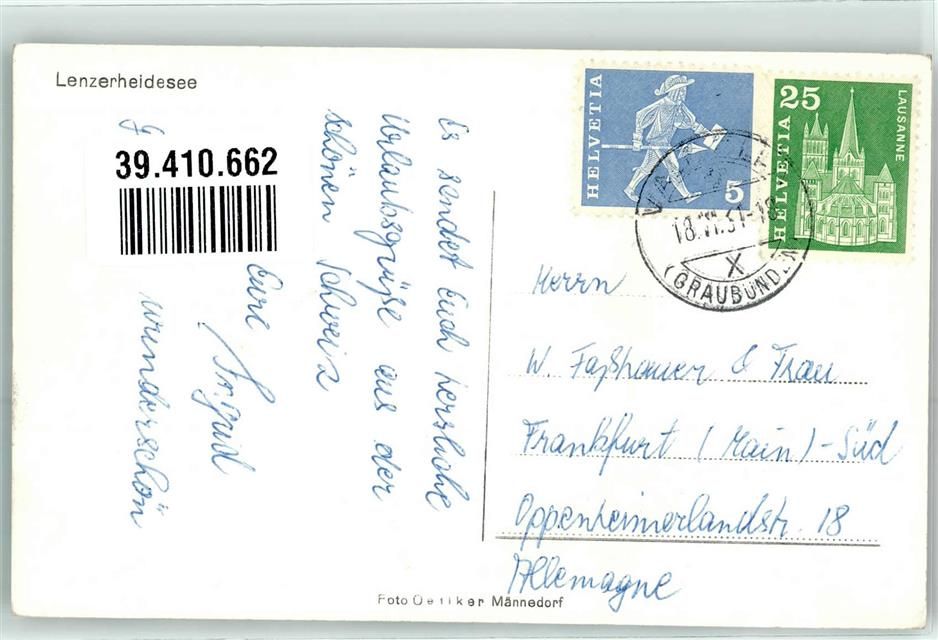 Lenzerheidesee
39.410.662
Es sendet Euch herzliche
Urlaubsgrüße aus der
schönen Schweiz
Eure
wunderschön
HELVETIA
5
25
HELVETIA
LAUSANNE
(GRAUBÜNDEN)
Herrn
W. Faßhauer & Frau
Frankfurt (Main)-Süd
Oppenheimerlandstr. 18
Allemagne
Foto Oetiker Männedorf